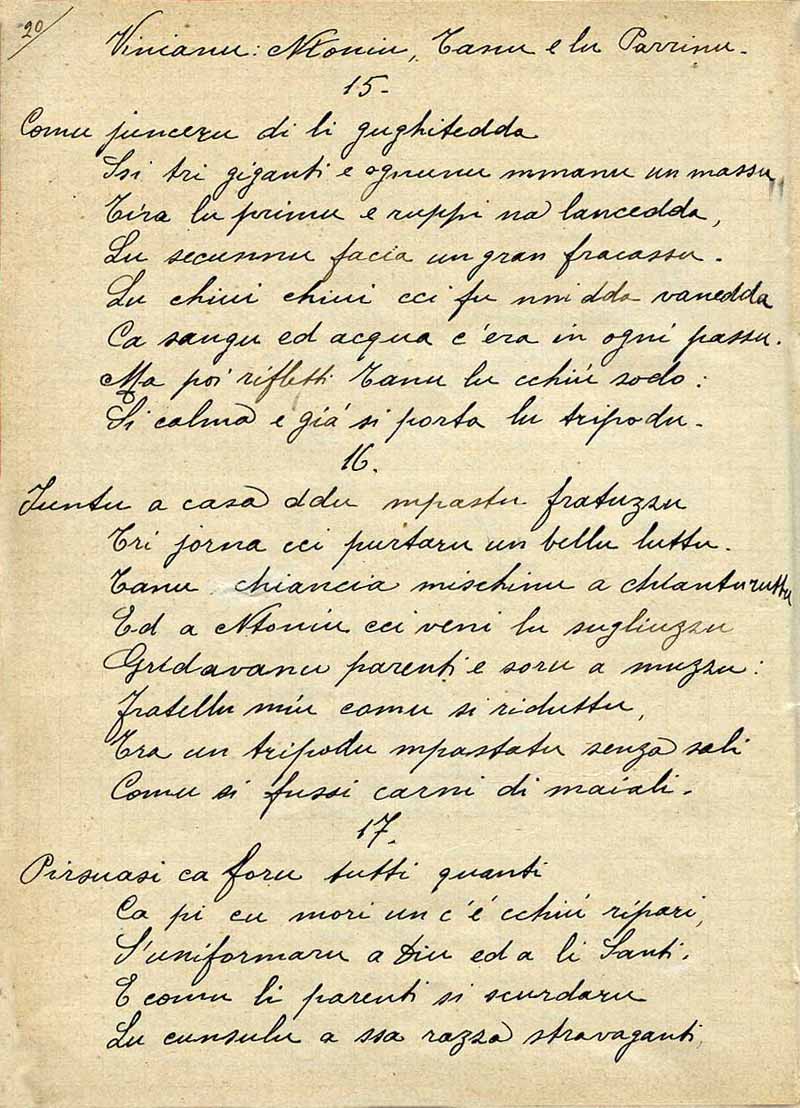 20/
Vinianu: Ntoniu, Tanu e lu Parrinu.
15.
Comu junceru di li gughitedda
Ssi tri giganti e ognunu mmanu un massu
Tira lu primu e ruppi na lancedda,
Lu secunnu facia un gran fracassu.
Lu chiui chiui cci fu nni dda vanedda
Ca sangu ed acqua c'era in ogni passu.
Ma poi rifletti Tanu lu cchiú sodo:
Si calma e giá si porta lu tripodu.
16.
Juntu a casa ddu mpastu fratuzzu
Tri jorna cci purtaru un bellu luttu.
Tanu chiancia mischinu a chiantu ruttu
Ed a Ntoniu cci veni lu sugliuzzu
Gridavanu parenti e soru a muzzu:
Fratellu miu comu si riduttu,
Era un tripodu mpastatu senza sali
Comu si fussi carni di maiali.
17.
Pirsuasi ca foru tutti quanti
Ca pi cu mori un c'é cchiú ripari,
S'uniformaru a Diu ed a li Santi.
E comu li parenti si scurdaru
Lu cunsulu a ssa razza stravaganti,